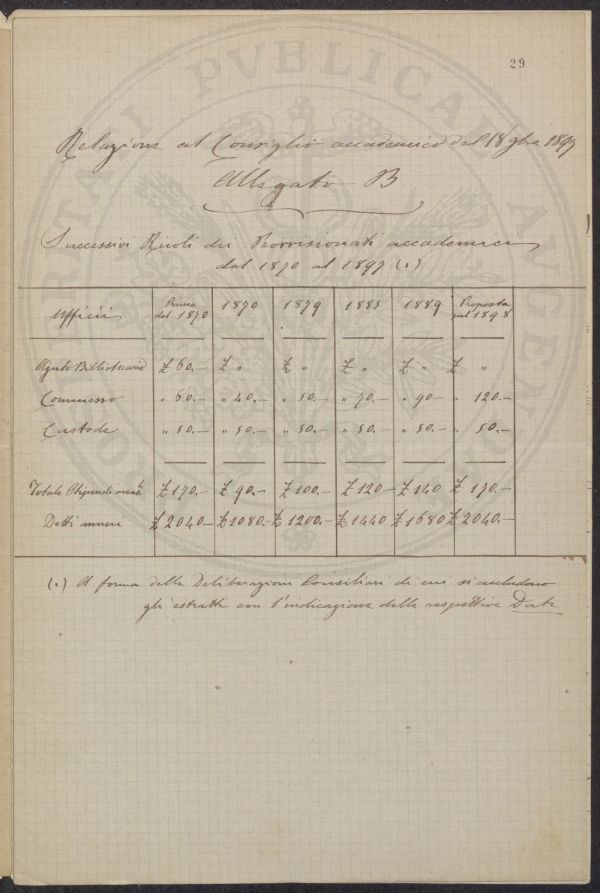 29
Relazione al Consiglio accademico del 18 9bre 1897
Allegato B
Successivi Ruoli dei Provvisionati accademici
dal 1870 al 1897 (1)
Ufficii Prima del 1870 1870 1879 1883 1889 Proposta pel 1898
Ajuto Bibliotecario £ 60.— £ „ £ „ £ „ £ „ £ „
Commesso „ 60.— „ 40.— „ 50.— „ 70.— „ 90— „ 120.—
Custode „ 50.— „ 50.— „ 50.— „ 50.— „ 50.— „ 50.—
Totale Stipendi mens. £ 170.— £ 90.— £ 100.— £ 120— £ 140 £ 170.—
Detti annui £ 2040— £ 1080.— £ 1200.— £ 1440 £ 1680 £ 2040.—
(1) A forma delle Deliberazioni Consiliari di cui si accludono
gli estratti con l'indicazione delle respettive Date